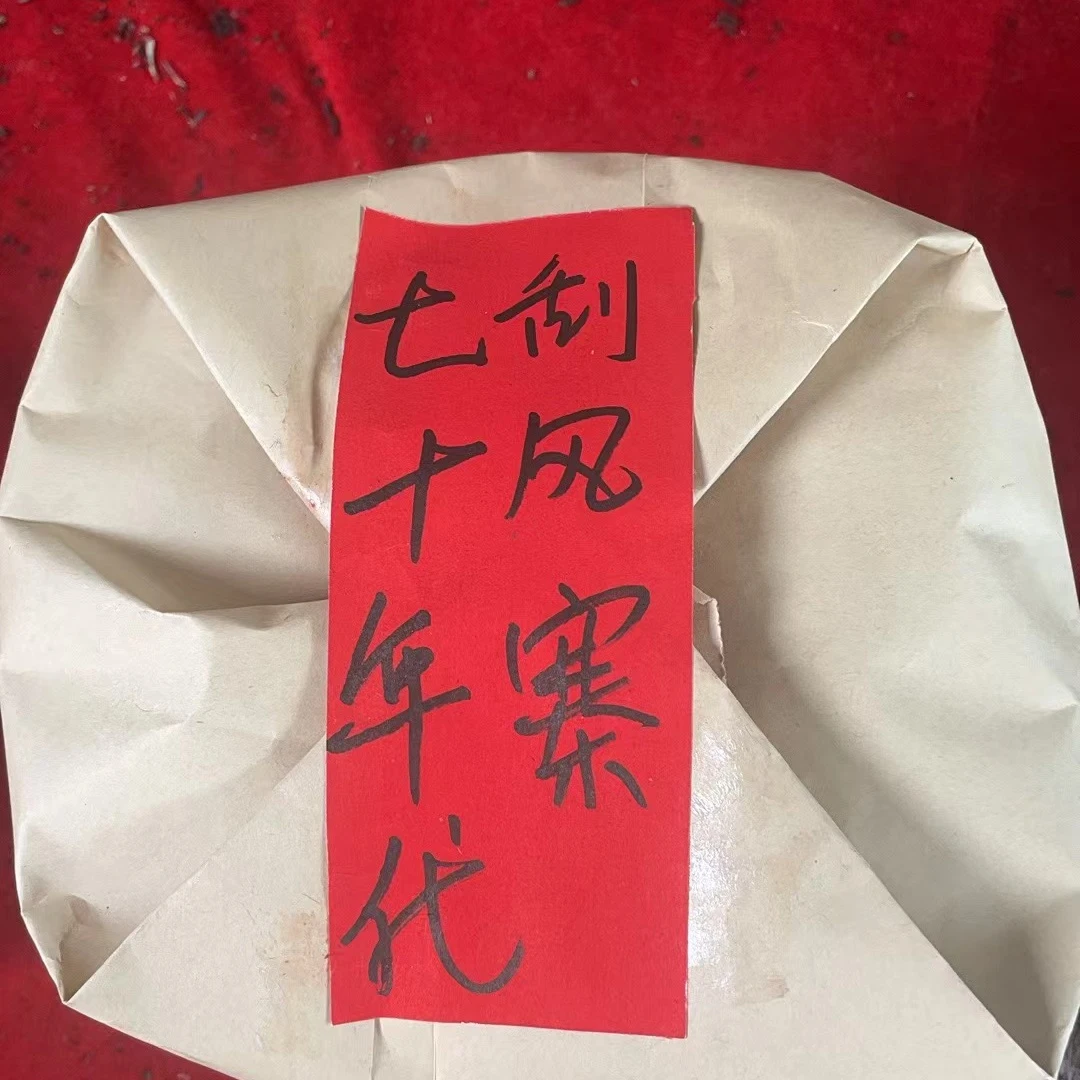 刮风寨
七十年代